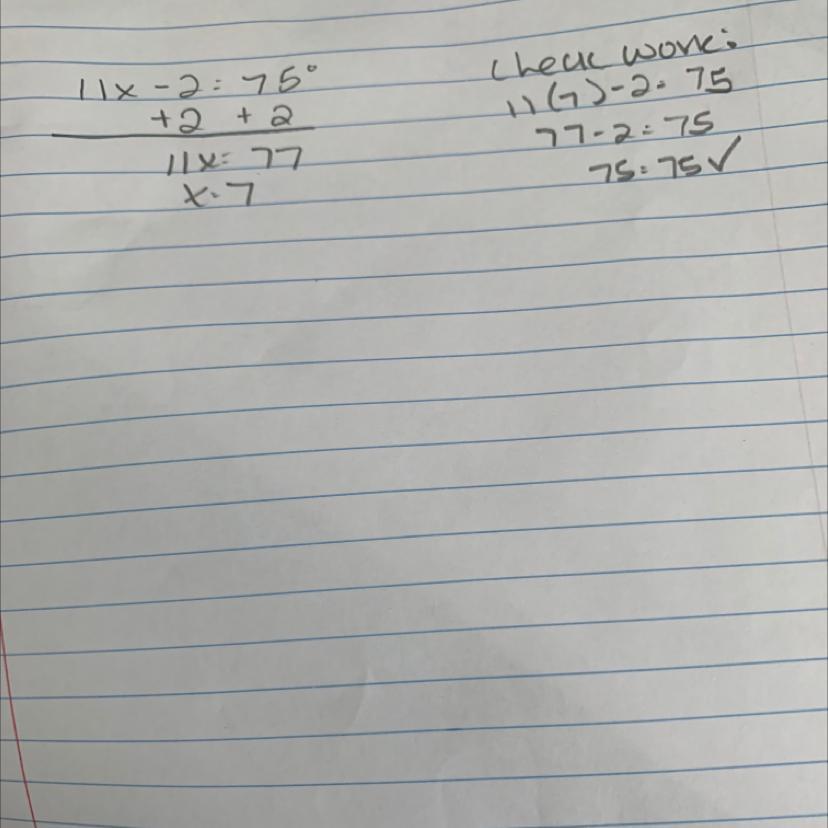 11x - 2 = 75°
+2 + 2
11x = 77
x = 7
Check work:
11(7) - 2 = 75
77 - 2 = 75
75 = 75 ✓